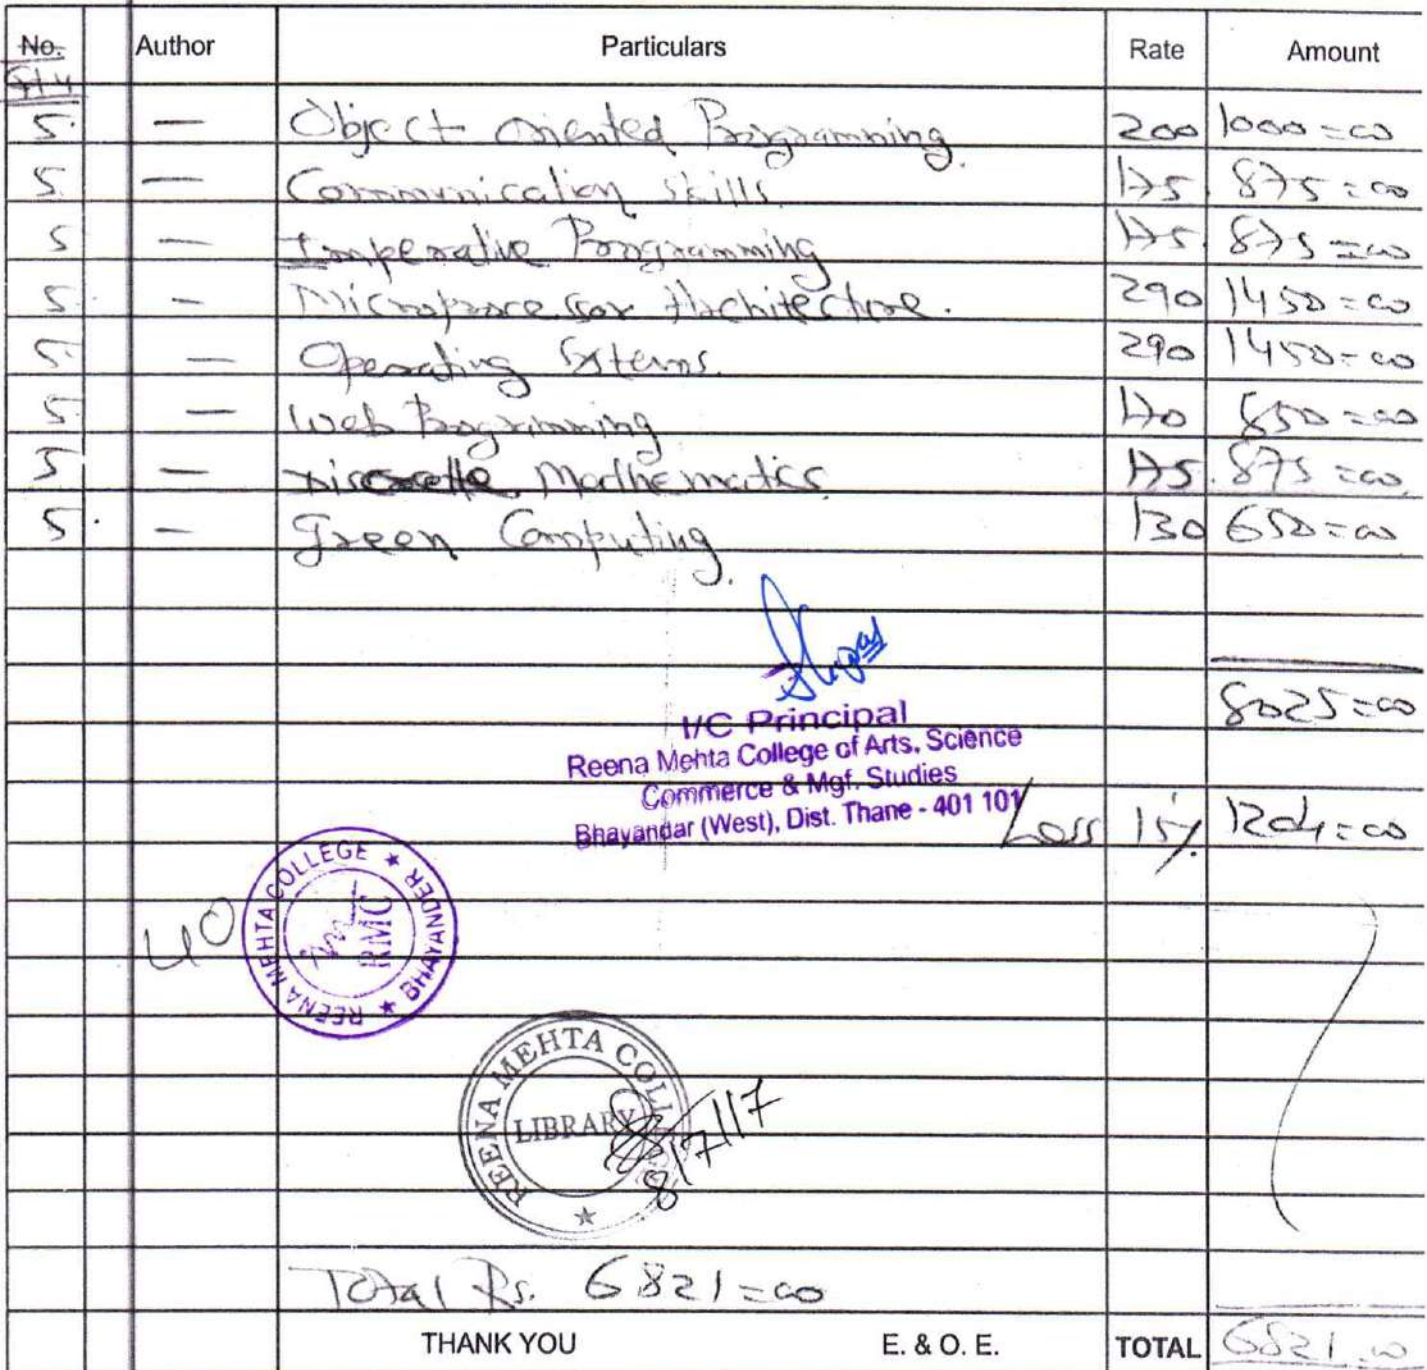 No. Author Particulars Rate Amount
Qty
5 — Object oriented Programming. 200 1000=00
5 — Communication skills 175 875=00
5 — Imperative Programming 175 875=00
5 — Microprocessor Architecture. 290 1450=00
5 — Operating Systems. 290 1450=00
5 — Web Programming 170 850=00
5 — Discrette Mathematics 175 875=00
5 — Green Computing. 130 650=00
8025=00
I/C Principal
Reena Mehta College of Arts, Science
Commerce & Mgf. Studies
Bhayandar (West), Dist. Thane - 401 101
Less 15% 1204=00
40
REENA MEHTA COLLEGE ★ BHAYANDER ★
RMC
REENA MEHTA COLL
LIBRARY
8/7/17
Total Rs. 6821=00
THANK YOU E. & O. E. TOTAL 6821.00